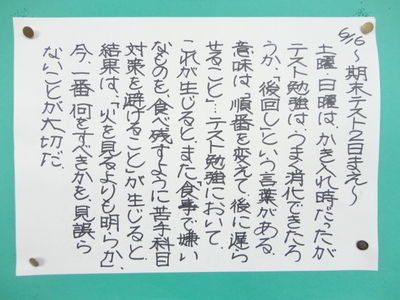 6/6〜期末テスト2日まえ〜
土曜・日曜は、かき入れ時だったが
テスト勉強は、うまく消化できたろ
うか。「後回し」という言葉がある。
意味は、「順番を変えて、後に遅ら
せること」…テスト勉強において、
これが生じると、また、「食事で嫌い
なものを、食べ残すように苦手科目
対策を避けること」が生じると、
結果は、「火を見るよりも明らか」。
今、一番何をすべきかを、見誤ら
ないことが大切だ。